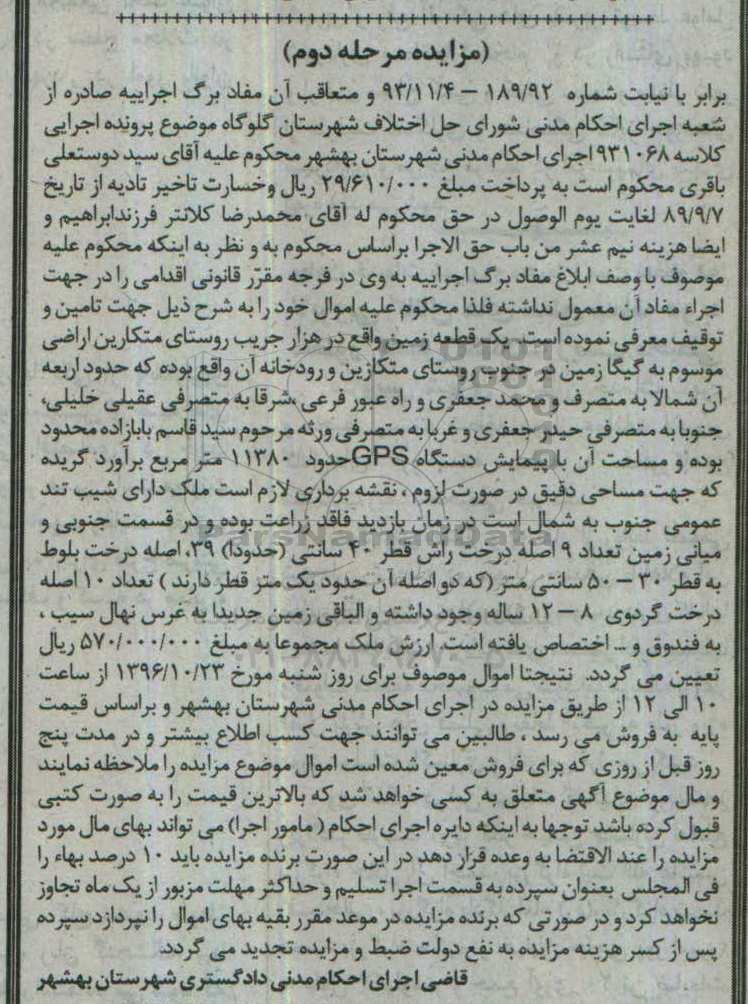 (مزایده مرحله دوم)
برابر با نیابت شماره ۱۸۹/۹۲ – ۹۳/۱۱/۴ و متعاقب آن مفاد برگ اجراییه صادره از
شعبه اجرای احکام مدنی شورای حل اختلاف شهرستان گلوگاه موضوع پرونده اجرایی
کلاسه ۹۳۱۰۶۸ اجرای احکام مدنی شهرستان بهشهر محکوم علیه آقای سید دوستعلی
باقری محکوم است به پرداخت مبلغ ۲۹/۶۱۰/۰۰۰ ریال وخسارت تاخیر تادیه از تاریخ
۸۹/۹/۷ لغایت یوم الوصول در حق محکوم له آقای محمدرضا کلانتر فرزندابراهیم و
ایضا هزینه نیم عشر من باب حق الاجرا براساس محکوم به و نظر به اینکه محکوم علیه
موصوف با وصف ابلاغ مفاد برگ اجراییه به وی در فرجه مقرّر قانونی اقدامی را در جهت
اجراء مفاد آن معمول نداشته فلذا محکوم علیه اموال خود را به شرح ذیل جهت تامین و
توقیف معرفی نموده است. یک قطعه زمین واقع در هزار جریب روستای متکازین اراضی
موسوم به گیگا زمین در جنوب روستای متکازین و رودخانه آن واقع بوده که حدود اربعه
آن شمالا به متصرف و محمد جعفری و راه عبور فرعی ،شرقا به متصرفی عقیلی خلیلی،
جنوبا به متصرفی حیدر جعفری و غربا به متصرفی ورثه مرحوم سید قاسم بابازاده محدود
بوده و مساحت آن با پیمایش دستگاه GPSحدود ۱۱۳۸۰ متر مربع برآورد گریده
که جهت مساحی دقیق در صورت لزوم ، نقشه برداری لازم است ملک دارای شیب تند
عمومی جنوب به شمال است در زمان بازدید فاقد زراعت بوده و در قسمت جنوبی و
میانی زمین تعداد ۹ اصله درخت راش قطر ۴۰ سانتی (حدودا) ۳۹، اصله درخت بلوط
به قطر ۳۰ – ۵۰ سانتی متر (که دو اصله آن حدود یک متر قطر دارند ) تعداد ۱۰ اصله
درخت گردوی ۸ – ۱۲ ساله وجود داشته و الباقی زمین جدیدا به غرس نهال سیب ،
به فندوق و ... اختصاص یافته است. ارزش ملک مجموعا به مبلغ ۵۷۰/۰۰۰/۰۰۰ ریال
تعیین می گردد. نتیجتا اموال موصوف برای روز شنبه مورخ ۱۳۹۶/۱۰/۲۳ از ساعت
۱۰ الی ۱۲ از طریق مزایده در اجرای احکام مدنی شهرستان بهشهر و براساس قیمت
پایه به فروش می رسد ، طالبین می توانند جهت کسب اطلاع بیشتر و در مدت پنج
روز قبل از روزی که برای فروش معین شده است اموال موضوع مزایده را ملاحظه نمایند
و مال موضوع آگهی متعلق به کسی خواهد شد که بالاترین قیمت را به صورت کتبی
قبول کرده باشد توجها به اینکه دایره اجرای احکام ( مامور اجرا) می تواند بهای مال مورد
مزایده را عند الاقتضا به وعده قرار دهد در این صورت برنده مزایده باید ۱۰ درصد بهاء را
فی المجلس بعنوان سپرده به قسمت اجرا تسلیم و حداکثر مهلت مزبور از یک ماه تجاوز
نخواهد کرد و در صورتی که برنده مزایده در موعد مقرر بقیه بهای اموال را نپردازد سپرده
پس از کسر هزینه مزایده به نفع دولت ضبط و مزایده تجدید می گردد.
قاضی اجرای احکام مدنی دادگستری شهرستان بهشهر
ParsNamadData